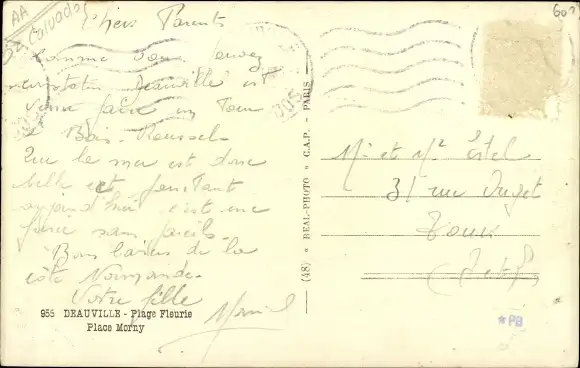 AA
(Calvados)
Chers Parents
Comme vous pouvez
constater Deauville est
venue faire un Tour
Bois-Roussel
Que la mer est donc
belle et pourtant
aujourd'hui c'est une
sans pareils.
Bons baisers de la
côte Normande.
Votre fille
955 DEAUVILLE - Plage Fleurie
Place Morny
(48) « REAL-PHOTO » C.A.P. - PARIS
305
60
Mr et Me Estel
31 rue
Tours
*PB